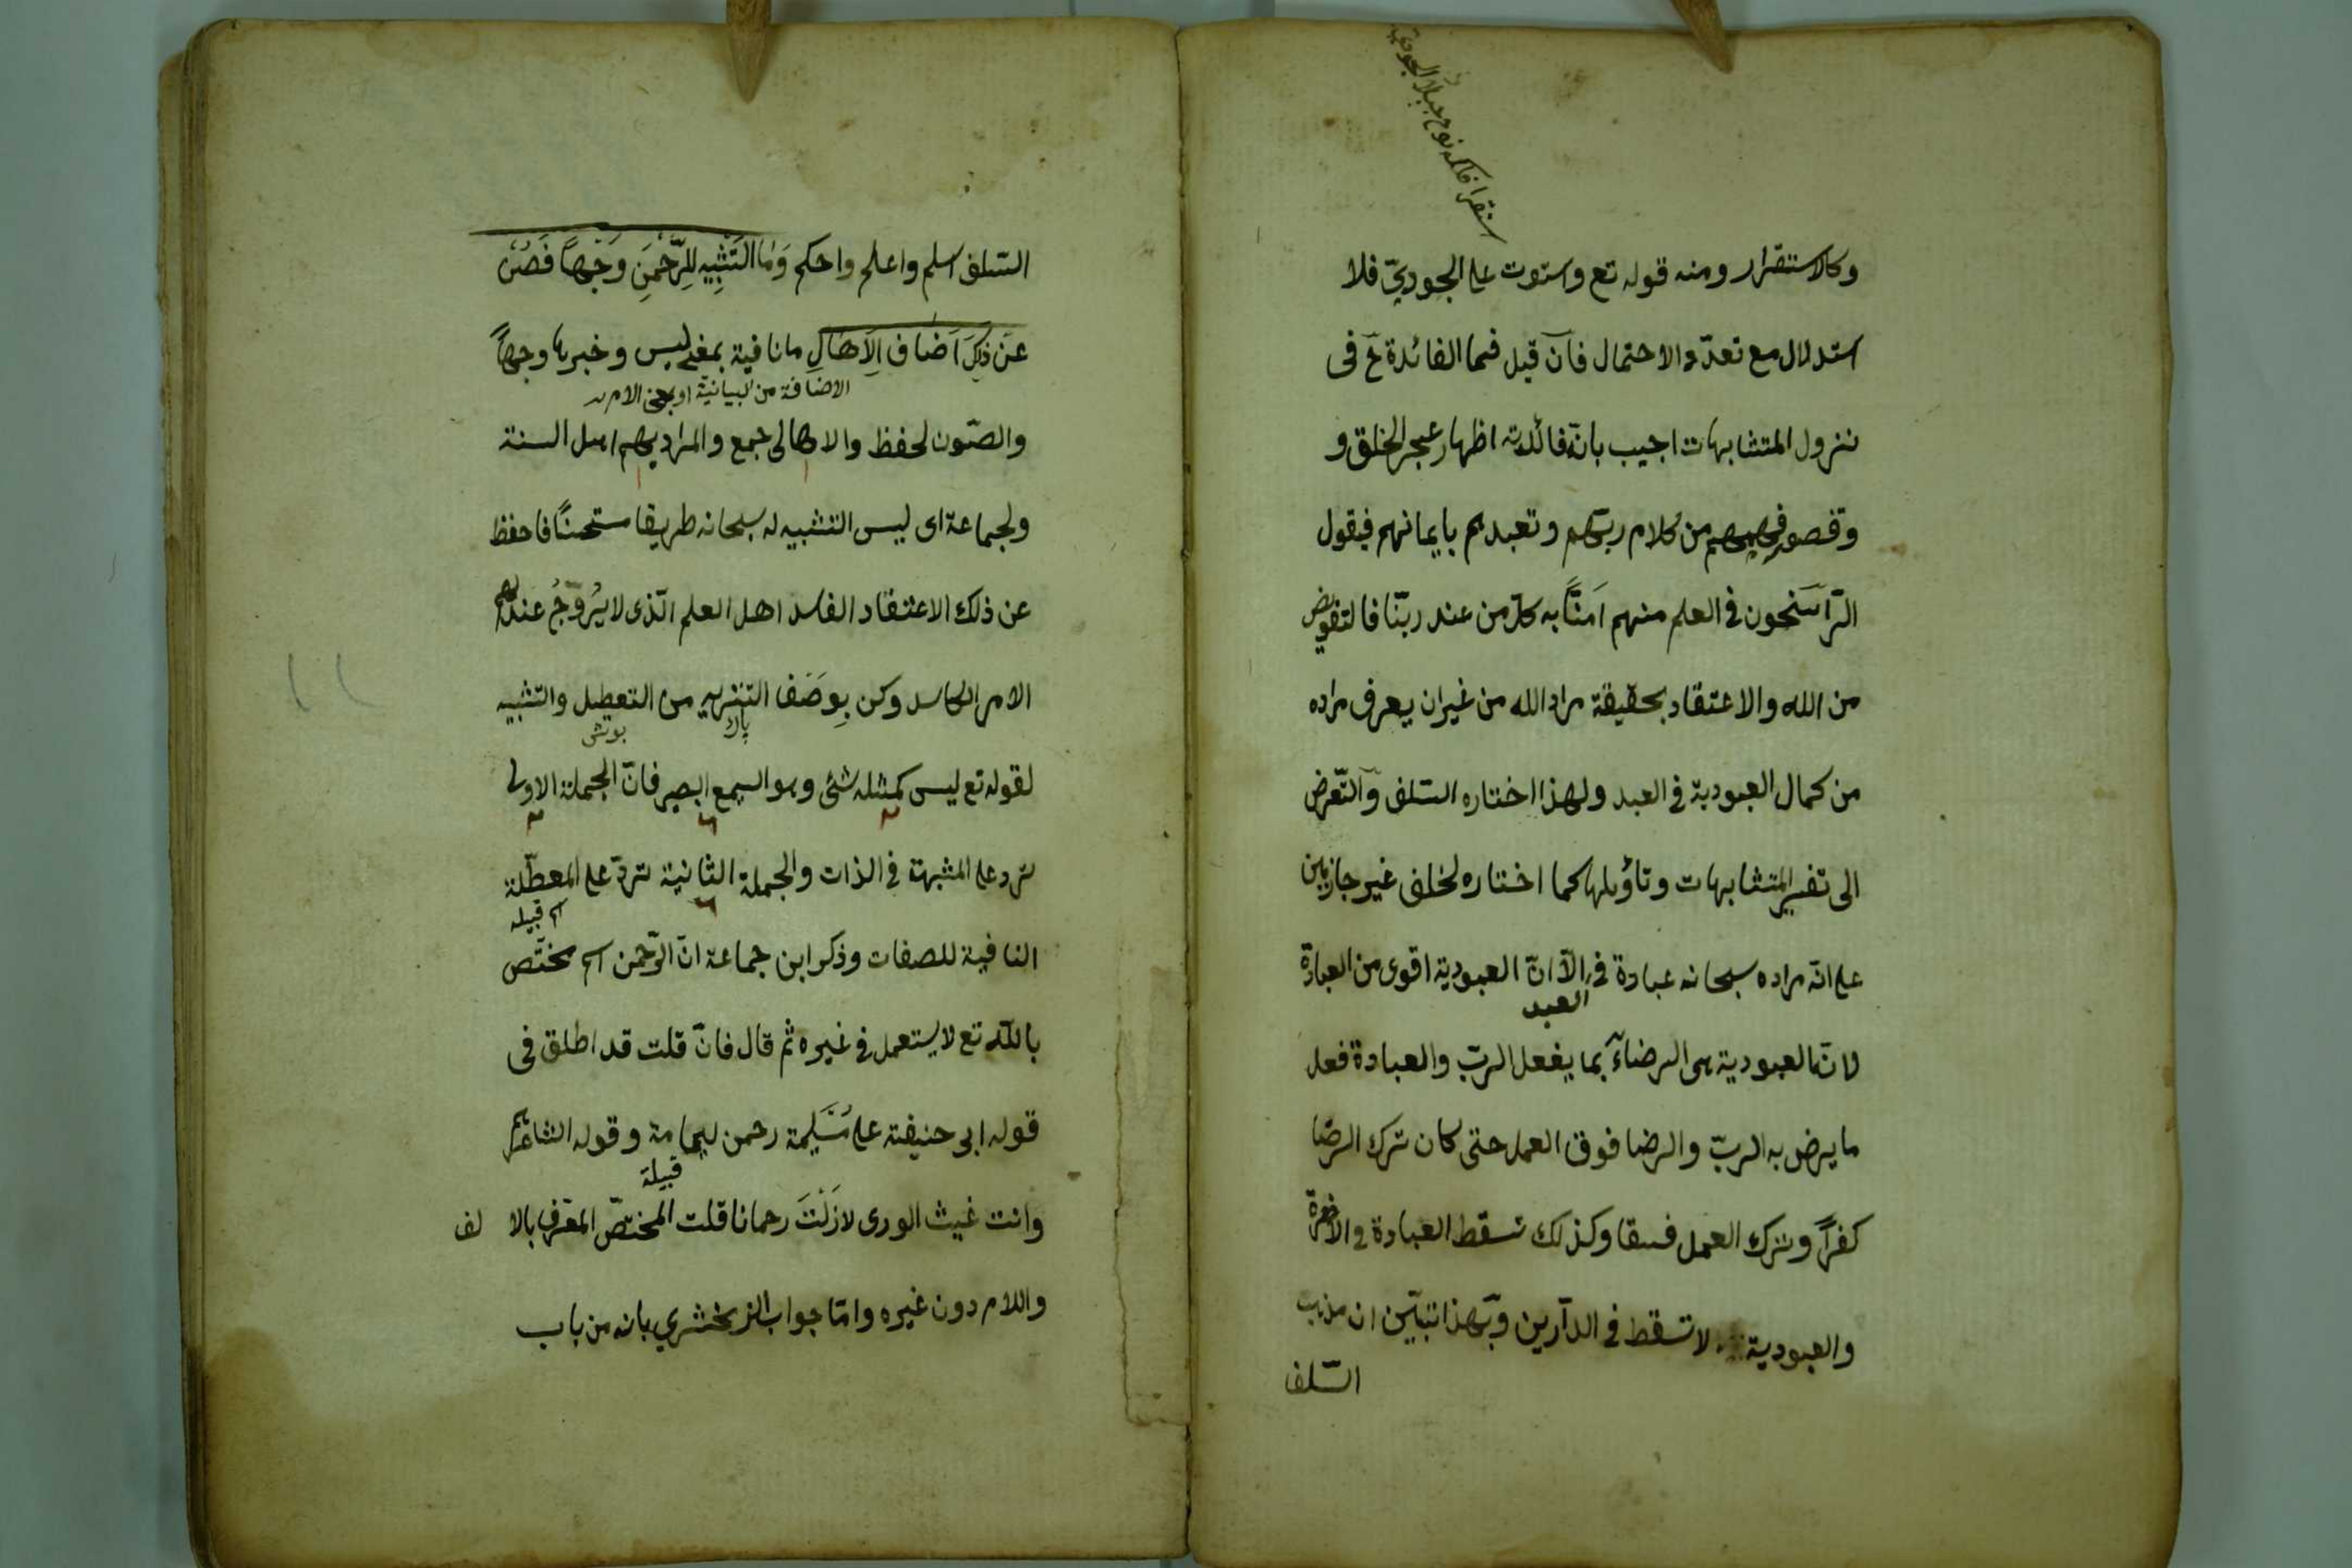 استقر افلكه نوح جبل الجودي
وكالاستقرار ومنه قوله تع واستوت على الجوديّ فلا
استدلال مع تعدّد الاحتمال فان قيل فما الفائدة ح فى
نزول المتشابهات اجيب بانّ فائدته اظهار عجز الخلق و
وقصور فهمهم من كلام ربّهم وتعبدهم بايمانهم فيقول
الرّاسخون في العلم منهم اَمنَّا به كلّ من عند ربّنا فالتفويض
من الله والاعتقاد بحقيقة مراد الله من غير ان يعرف مراده
من كمال العبودية في العبد ولهذا اختاره السّلف والتّعرض
الى تفسير المتشابهات وتاؤيلها كما اختاره لخلف غير جازمين
على انّه مراده سبحانه عبادة في الّا انّ العبودية اقوى من العبادة
العبد
لانّ العبودية هى الرضاء بما يفعل الربّ والعبادة فعل
ما يرض به الربّ والرضا فوق العمل حتى كان ترك الرضا
كفراً وترك العمل فسقا وكذلك تسقط العبادة في الاخرة
والعبودية لا تسقط في الدّارين وبهذا تبيّن ان مذهب
السّلف
السّلف اسلم واعلم واحكم وَمَا التَشْبِيه لِلرَّحْمَنِ وَجْهاً فَصُنْ
عَن ذَلِكَ اَصْنَافَ الاَهَالِي ما نافية بمعنى ليس وخبرها وجهاً
الاضافة من البيانية او بمعنى الام
والصّون لحفظ والاهالى جمع والمراد بهم اهل السنة
ولجماعة اى ليس التشبيه له سبحانه طريقا مستحسنًا فاحفظ
عن ذلك الاعتقاد الفاسد اهل العلم الّذى لا يُرَوّجُ عندهم
الامر الكاسد وكن بِوصَفِ التنزيه من التعطيل والتشبيه
پاك بوش
لقوله تع ليس كمثله شئ وهو السميع البصير فانّ الجملة الاولى
ترد على المشبهة في الذات والجملة الثانية تردّ على المعطّلة
اسم قبيله
النافية للصفات وذكر ابن جماعة انّ الرّحمن اسم مختّص
بالله تع لا يستعمل في غيره ثم قال فانّ قلت قد اطلق فى
قول ابى حنيفته على مُسَيلمة رحمن ليمامة وقول الشاعرهم
قبيلة
وانت غيث الورى لازَلْتَ رحمانا قلت المختصّ المعّرف بالا لف
واللام دون غيره وامّا جواب الزمخشري بانه من باب